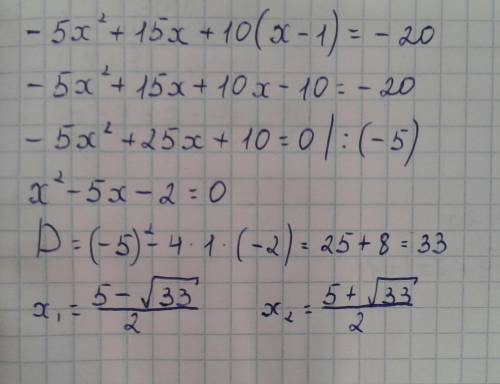 - 5x² + 15x + 10(x - 1) = - 20
- 5x² + 15x + 10x - 10 = - 20
- 5x² + 25x + 10 = 0 | : (-5)
x² - 5x - 2 = 0
D = (-5)² - 4 · 1 · (-2) = 25 + 8 = 33
x₁ = (5 - √33)/2    x₂ = (5 + √33)/2